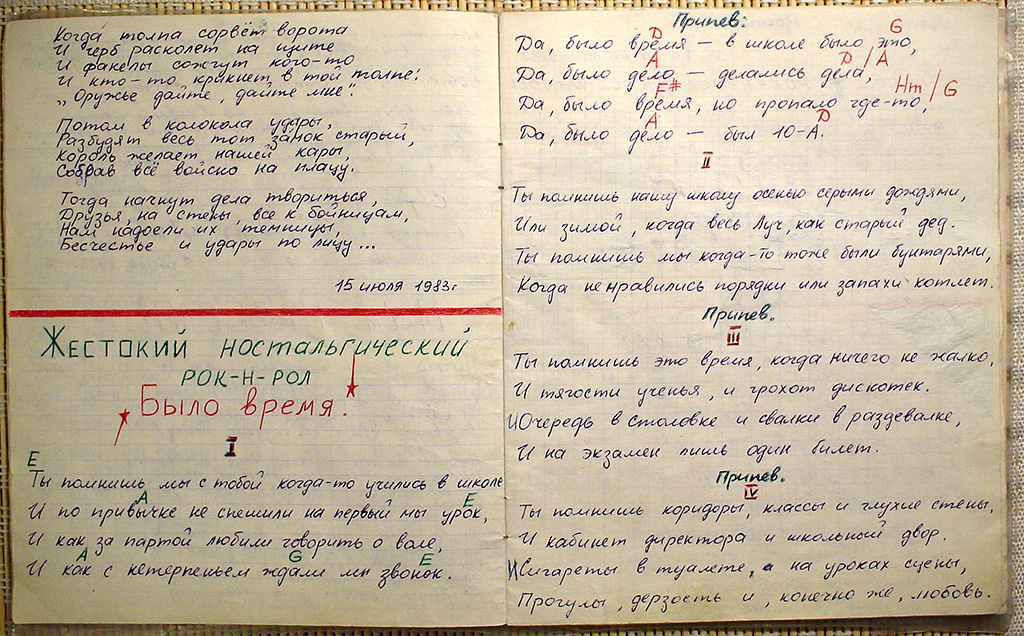 Когда толпа сорвёт ворота
И герб расколет на щите
И факелы сожгут кого-то
И кто-то крикнет в той толпе:
„Оружье дайте, дайте мне".
Потом в колокола удары,
Разбудят весь тот замок старый,
Король желает нашей кары,
Собрав всё войско на плацу.
Тогда начнут дела твориться,
Друзья, на стены, все к бойницам,
Нам надоели их темницы,
Бесчестье и удары по лицу...
15 июля 1983г
Жестокий ностальгический
рок-н-рол
Было время.
I
E
Ты помнишь мы с тобой когда-то учились в школе
A E
И по привычке не спешили на первый мы урок,
И как за партой любили говорить о воле,
A G E
И как с нетерпеньем ждали мы звонок.
Припев:
D G
Да, было время – в школе было это,
A D/A
Да, было дело – делались дела,
F# Hm/G
Да, было время, но пропало где-то,
A D
Да, было дело – был 10-А.
II
Ты помнишь нашу школу осенью серыми дождями,
Или зимой, когда весь Луч, как старый дед.
Ты помнишь мы когда-то тоже были бунтарями,
Когда не нравились порядки или запахи котлет.
Припев.
III
Ты помнишь это время, когда ничего не жалко,
И тягости ученья, и грохот дискотек.
И Очередь в столовке и свалки в раздевалке,
И на экзамен лишь один билет.
Припев.
IV
Ты помнишь коридоры, классы и глухие стены,
И кабинет директора и школьный двор.
И Сигареты в туалете, а на уроках сцены,
Прогулы, дерзость и, конечно же, любовь.